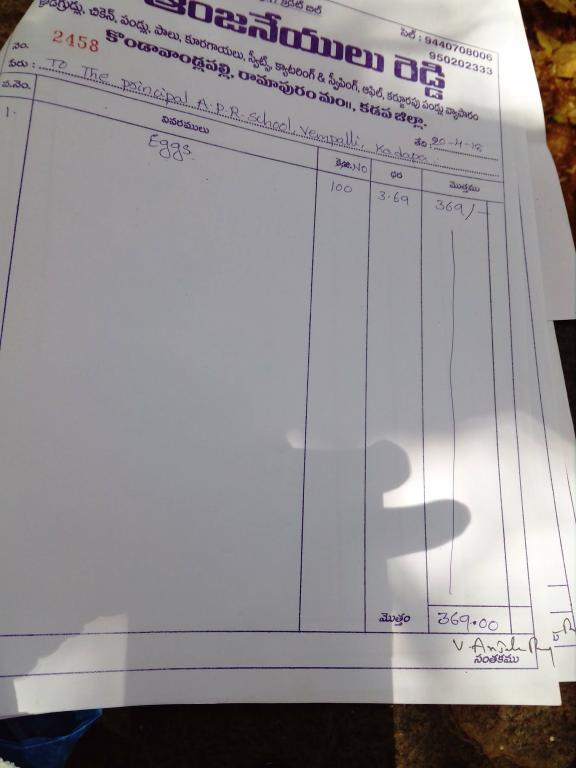 క్రెడిట్ బిల్
సెల్ : 9440708006
950202333
ఆంజనేయులు రెడ్డి
చికెన్, పండ్లు, పాలు, కూరగాయలు, స్వీట్స్, క్యాటరింగ్ & స్వీపింగ్, ఆఫిల్, కర్బూరపు పండ్లు వ్యాపారం
కొండావాండ్లపల్లి, రామాపురం మం॥, కడప జిల్లా.
నెం. 2458
పేరు : To The principal A.P.R. school, Vempalli, Kadapa.
తేది : 20-4-18
వ.నెం. వివరములు కె.జి.NO ధర మొత్తము
1. Eggs 100 3.69 369/-
మొత్తం 369.00
సంతకము